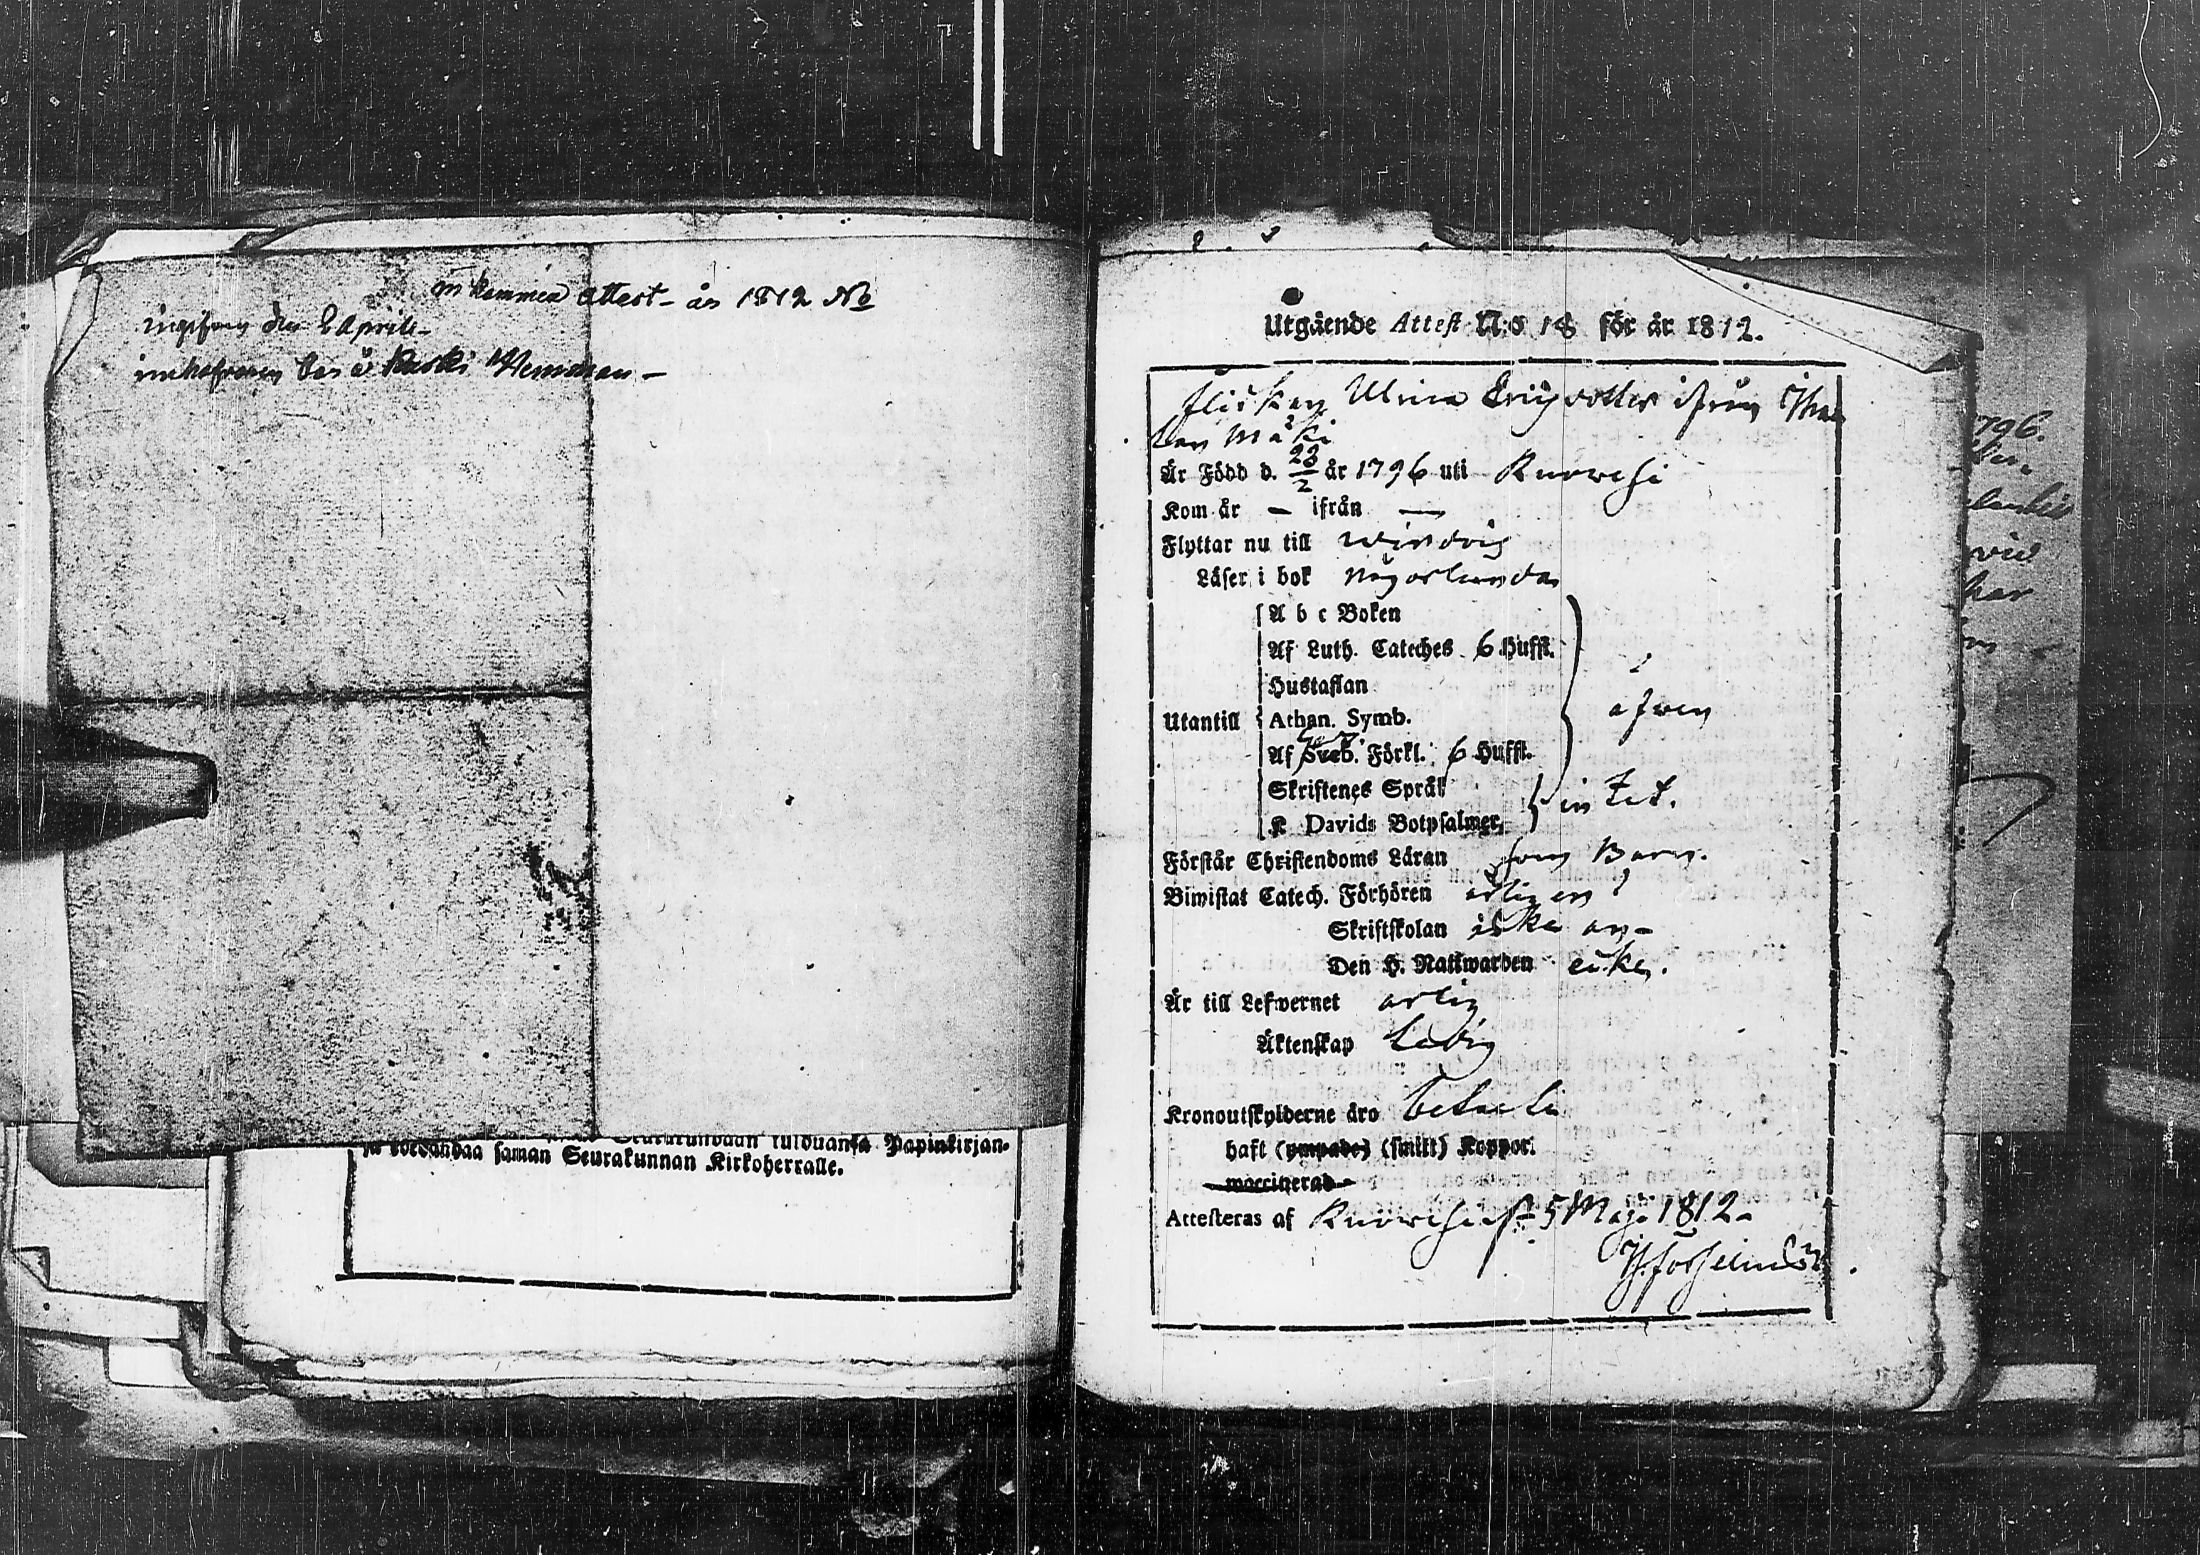 inkommen attest år 1812 No
ingifven den 2 Aprill
innehafvaren bor å Kaski Hemman
Seurakundaan tulduansa Papinkirjan-
sa edesandaa saman Seurakunnan Kirkoherralle.
Utgående Attest N:o 18 för år 1812.
flickan Ulrica Ericsdotter ifrån
Mäki
Är Född d. 23/2 år 1796 uti Kuowesi
Kom år — ifrån —
Flyttar nu till
Läser i bok någorlunda
A b c Boken
Af Luth. Cateches 6 Hufst.
Hustaflan
Utantill Athan. Symb.
Af Sveb. Förkl. 6 Hufst.
Skriftenes Språk
K Davids Botpsalmer,
äfven
intet.
Förstår Christendoms Läran som Barn.
Biwistat Catech. Förhören årligen
Skriftskolan icke än
Den H. Nattwarden icke.
Är till Lefvernet ärlig
Äktenskap Ledig
Kronoutskylderne äro betalte
haft (ympade) (smitt) Koppor.
waccinerad
Attesteras af Kuowesi 5 Maji 1812.
1796.
vid
har